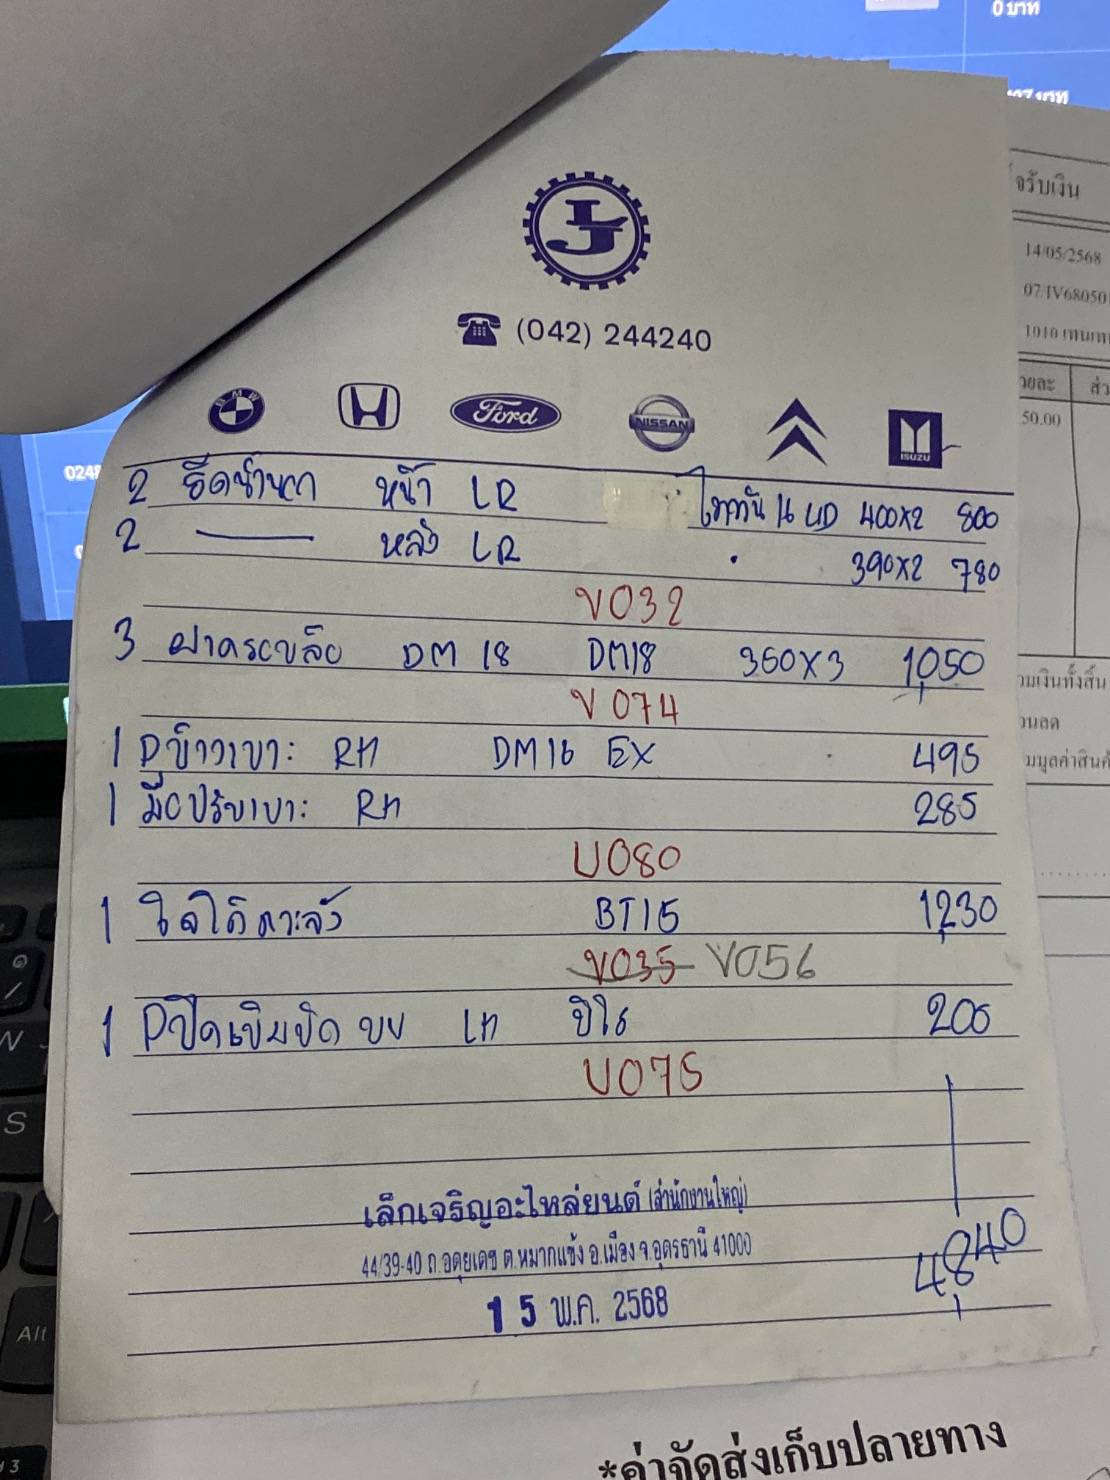 0 บาท
จรับเงิน
14/05/2568
07/IV68050
1010 เทนเท
(042) 244240
BMW
Ford
NISSAN
ISUZU
ยละ ส่ว
50.00
0248
2 ยึดน้ำนก หน้า LR ไททัน 16 UD 400X2 800
2 — หลัง LR 390X2 780
V032
3 ฝาครอบล้อ DM 18 DM18 350X3 1,050
V 074
วมเงินทั้งสิ้น
วนลด
มมูลค่าสินค้
1 Pข้างเบาะ RH DM16 EX 495
1 มือปรับเบาะ RH 285
U080
1 BT15 1,230
V035 V056
1 Pปิดเข็มขัด บน LH วีโก้ 200
U075
4,840
เล็กเจริญอะไหล่ยนต์ (สำนักงานใหญ่)
44/39-40 ถ.อดุยเดช ต.หมากแข้ง อ.เมือง จ.อุดรธานี 41000
15 พ.ค. 2568
N
S
Alt
*ค่าจัดส่งเก็บปลายทาง